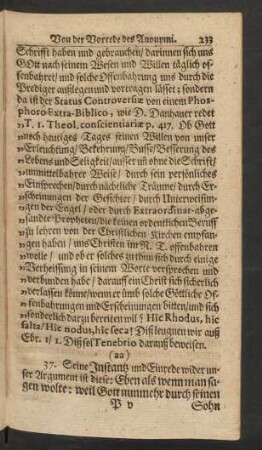 Von der Vorrede des Anonymi. 233
Schrifft haben und gebrauchen / darinnen sich uns
GOtt nach seinem Wesen und Willen täglich of-
fenbahret / und solche Offenbahrung uns durch die
Prediger auslegen und vortragen lässet; sondern
da ist der Status Controversiæ von einem Phos-
phoro Extra-Biblico, wie D. Danhauer redet
„T. 1. Theol. conscientiariæ p. 417. Ob Gott
„noch heutiges Tages seinen Willen von unser
„Erleuchtung / Bekehrung / Busse / Besserung des
„Lebens und Seligkeit / ausser uñ ohne die Schrift /
„unmittelbahrer Weise / durch sein persönliches
„Einsprechen / durch nächtliche Träume / durch Er-
„scheinungen der Gesichter / durch Unterweisun-
„gen der Engel / oder durch Extraordinar-abge-
„sandte Propheten / die keinen ordentlichen Beruff
„zu lehren von der Christlichen Kirchen empfan-
„gen haben / uns Christen im N. T. offenbahren
„wolle / und ob er solches zuthun sich durch einige
„Verheissung in seinem Worte versprochen und
„verbunden habe / darauff ein Christ sich sicherlich
„verlassen könne / wenn er ümb solche Göttliche Of-
„fenbahrungen und Erscheinungen bitten / und sich
„sonderlich darzu bereiten will? Hic Rhodus, hic
salta / Hic nodus, hic seca! Diß leugnen wir auß
Ebr. 1 / 1. Dißsel Tenebrio darauß beweisen.
(aa)
37. Seine Instantz und Einrede wider un-
ser Argument ist diese: Eben als wenn man sa-
gen wolte: weil Gott nunmehr durch seinen
P v Sohn